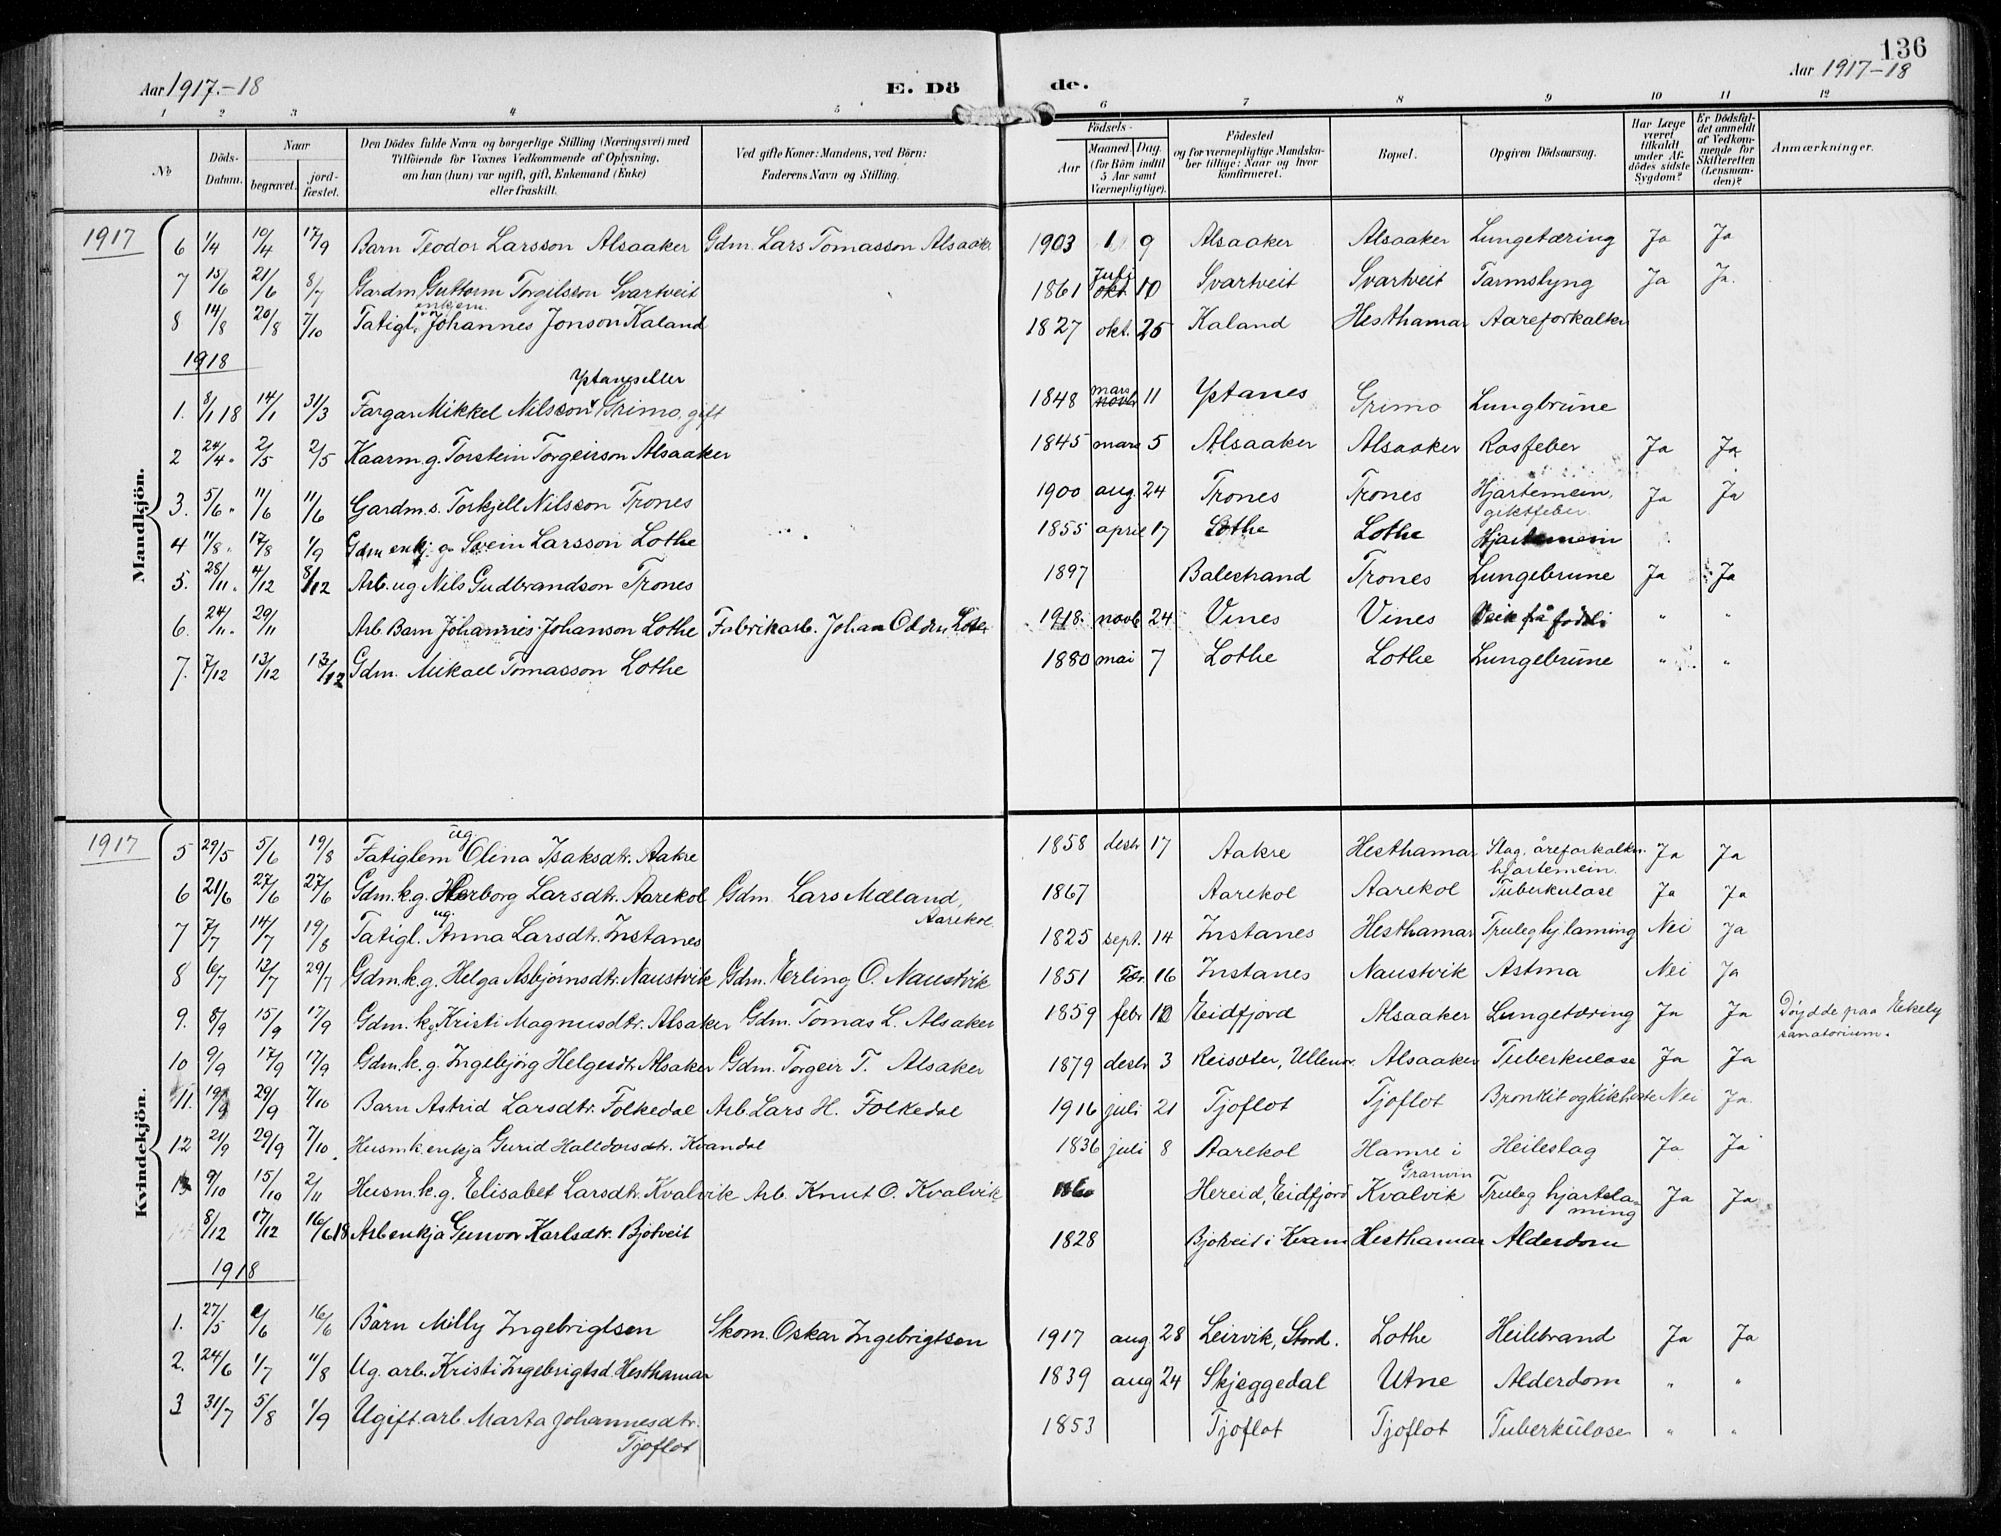 136
Aar 1917.-18 E. Dö
de. Aar 1917-18
1 2 3 4 5 6 7 8 9 10 11 12
No
Döds-Datum.
Naar
begravet.
jord-fæstet.
Den Dödes fulde Navn og borgerlige Stilling (Næringsvei) med
Tilföiende for Voxnes Vedkommende af Oplysning,
om han (hun) var ugift, gift, Enkemand (Enke)
eller fraskilt.
Ved gifte Koner: Mandens, ved Börn:
Faderens Navn og Stilling.
Födsels-
Aar
Maaned. Dag.
(for Börn indtil
5 Aar samt
Værnepligtige).
Födested
og for værnepligtige Mandska-
ber tillige: Naar og hvor
konfirmeret.
Bopæl.
Opgiven Dödsaarsag.
Har Læge
været
tilkaldt
under Af-
dödes sidste
Sygdom?
Er Dödsfal-
det anmeldt
af Vedkom-
mende for
Skifteretten
(Lensman-
den)?
Anmærkninger.
Mandkjön.
1917
6 1/4 10/4 17/9 Barn Teodor Larsson Alsaaker Gdm. Lars Tomasson Alsaaker 1903 1 9 Alsaaker Alsaaker Lungetæring Ja Ja
7 15/6 21/6 8/7 Gardm. Guttorm Torgilsson Svartveit 1861 Juli okt. 10 Svartveit Svartveit Tarmslyng Ja Ja.
8 14/8 20/8 7/10 Fatigl. enkem. Johannes Jonson Kaland 1827 okt. 25 Kaland Hesthamar Aareforkalkn
1918
Ystanes eller
1. 8/1 18 14/1 31/3 Fargar Mikkel Nilsson Grimo, gift 1848 mars novbr 11 Ystanes Grimo Lungbrune
2 24/4 " 2/5 2/5 Kaarm. g. Torstein Torgeirson Alsaaker 1845 mars 5 Alsaaker Alsaaker Rosfeber Ja Ja
3. 5/6 " 11/6 11/6 Gardm. s. Torkjell Nilsson Trones 1900 aug. 24 Trones Trones Hjartemein, giktfeber Ja Ja
4 11/8 " 17/8 1/9 Gdm enkj. g. Svein Larsson Lothe 1855 april 17 Lothe Lothe Hjartemein
5. 28/11 " 4/12 8/12 Arb. ug Nils Gudbrandson Trones 1897 Balestrand Trones Lungebrune Ja Ja
6. 24/11 " 29/11 Arb. Barn Johannes Johanson Lothe Fabrikarb. Johan 1918. novb 24 Vines Vines Veik frå fødsli " "
7. 7/12 13/12 13/12 Gdm. Mikael Tomasson Lothe 1880 mai 7 Lothe Lothe Lungebrune " "
Kvindekjön.
1917
5 29/5 5/6 19/8 Fatiglem ug Olina Isaksdtr. Aakre 1858 desbr 17 Aakre Hesthamar Slag, åreforkalkn. hjartemein. Ja Ja
6 21/6 27/6 27/6 Gdm. k. g. Herborg Larsdtr. Aarekol Gdm. Lars Midland, Aarekol 1867 Aarekol Aarekol Tuberkulose Ja Ja
7 7/7 14/7 19/8 Fatigl. ug. Anna Larsdtr. Instanes 1825 sept. 14 Instanes Hesthamar Truleg hj.laming Nei Ja
8 6/7 13/7 29/7 Gdm. k. g. Helga Asbjørnsdtr. Naustvik Gdm. Erling O. Naustvik 1851 16 Instanes Naustvik Astma Nei Ja
9. 8/9 15/9 17/9 Gdm. k. g. Kristi Magnusdtr. Alsaker Gdm. Tomas L. Alsaker 1859 febr 10 Eidfjord Alsaaker Lungetæring Ja Ja Døydde paa Eekely sanatorium.
10 9/9 17/9 17/9 Gdm. k. g. Ingebjörg Helgesdtr. Alsaker Gdm. Torgeir T. Alsaker 1879 desbr 3 Reisæter, Ullensv. Alsaaker Tuberkulose Ja Ja
11. 19/9 29/9 7/10 Barn Astrid Larsdtr. Folkedal Arb. Lars H. Folkedal 1916 juli 21 Tjoflot Tjoflot Bronkit og kikhoste Nei Ja.
12 21/9 29/9 7/10. Husm. k. enkja Gurid Halldorsdtr. Kvandal 1836 juli 8 Aarekol Hamre i Granvin Heileslag Ja Ja
13 9/10 15/10 2/11 Husm. k. g. Elisabet Larsdtr. Kvalvik Arb. Knut O. Kvalvik Hereid, Eidfjord Kvalvik Truleg hjartelaming Ja Ja
8/12 17/12 16/6 18 Arb enkja Gunvor Karlsdtr. Bjotveit 1828 Bjotveit i Kvam Hesthamar Alderdom
1918
1. 27/5 /6 16/6 Barn Milly Ingebrigtsen Skom. Oskar Ingebrigtsen 1917 aug. 28 Leirvik, Stord. Lothe Heilebrand Ja Ja
2. 24/6 1/7 11/8 Ug. arb. Kristi Ingebrigtsd. Hesthamar 1839 aug 24 Skjeggedal Utne Alderdom " "
3 31/7 5/8 1/9 Ugift. arb. Marta Johannesdtr. Tjoflot 1853 Tjoflot Tjoflot Tuberkulose " "